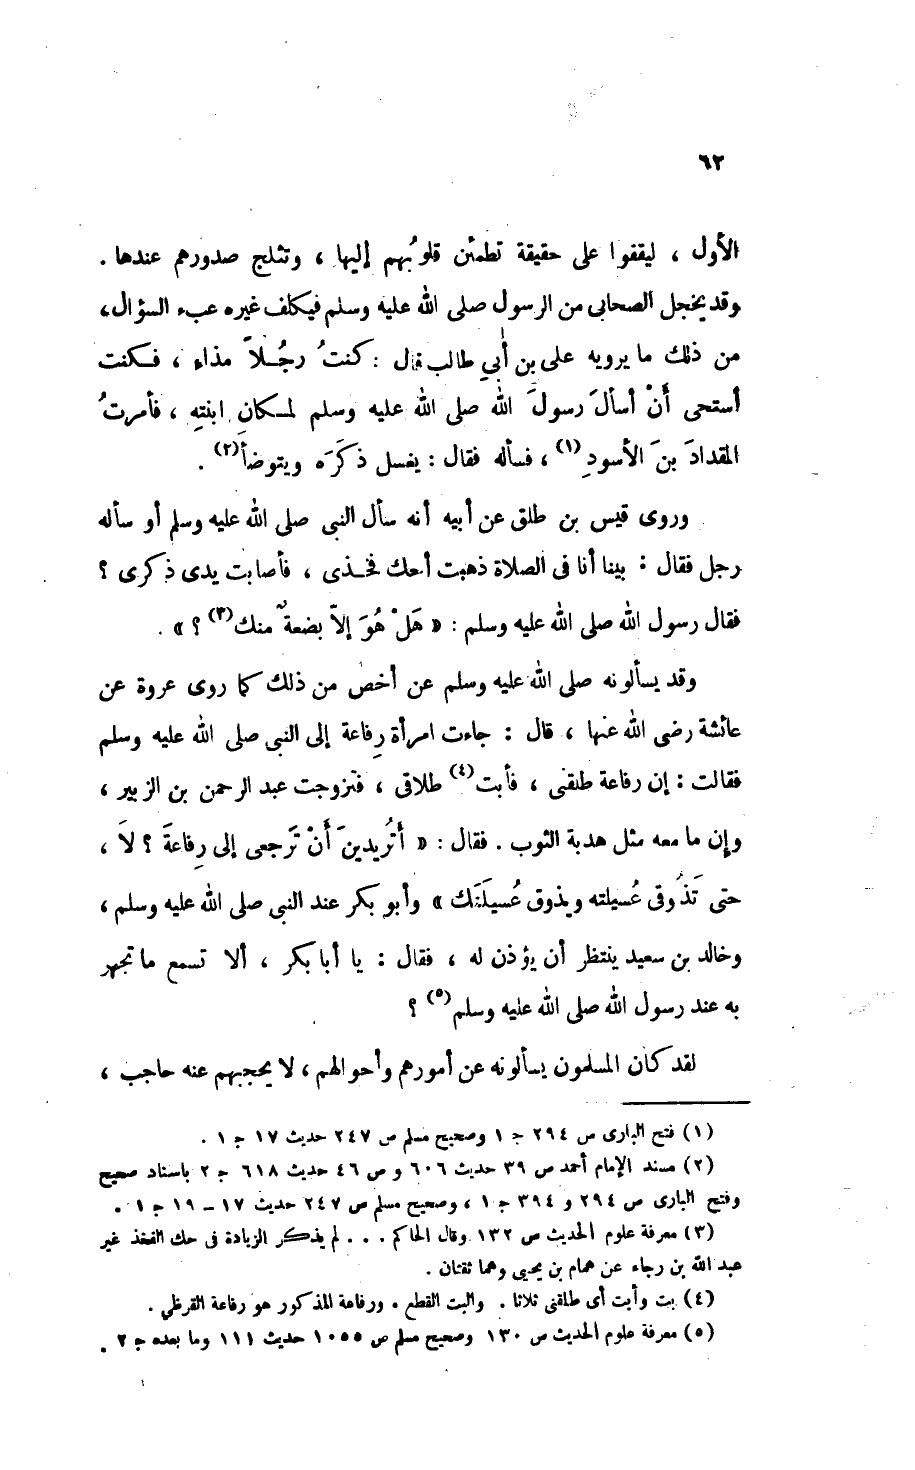 ٦٢
الأول ، ليقفوا على حقيقة تطمئن قلوبُهم إليها ، وتثلج صدورهم عندها .
وقد يخجل الصحابى من الرسول صلى الله عليه وسلم فيكلف غيره عبء السؤال،
من ذلك ما يرويه على بن أبي طالب قال : كنتُ رجُلاً مذاء ، فكنت
أستحى أنْ أسألَ رسولَ الله صلى الله عليه وسلم لمكان ابنتهِ ، فأمرتُ
المقدادَ بنَ الأسودِ(١) ، فسأله فقال : يغسل ذكَرَه ويتوضأَ(٢) .
وروى قيس بن طلق عن أبيه أنه سأل النبى صلى الله عليه وسلم أو سأله
رجل فقال : بينا أنا فى الصلاة ذهبت أحك فخذى ، فأصابت يدى ذكرى ؟
فقال رسول الله صلى الله عليه وسلم : « هَلْ هُوَ إلاّ بضعةٌ منك(٣) ؟ » .
وقد يسألونه صلى الله عليه وسلم عن أخص من ذلك كما روى عروة عن
عائشة رضى الله عنها ، قال : جاءت امرأة رِفاعة إلى النبى صلى الله عليه وسلم
فقالت : إن رفاعة طلقنى ، فأبت(٤) طلاقى ، فتزوجت عبد الرحمن بن الزبير ،
وإن ما معه مثل هدبة الثوب . فقال : « أتُريدينَ أَنْ تَرجعى إلى رِفاعةَ ؟ لاَ ،
حتى تَذُوقى عُسيلته ويذوق عُسيلَتَك » وأبو بكر عند النبى صلى الله عليه وسلم ،
وخالد بن سعيد ينتظر أن يؤذن له ، فقال : يا أبا بكر ، ألا تسمع ما تجهر
به عند رسول الله صلى الله عليه وسلم(٥) ؟
لقد كان المسلمون يسألونه عن أمورهم وأحوالهم ، لا يحجبهم عنه حاجب ،
(١) فتح البارى ص ٢٩٤ ج ١ وصحيح مسلم ص ٢٤٧ حديث ١٧ ج ١ .
(٢) مسند الإمام أحمد ص ٣٩ حديث ٦٠٦ و ص ٤٦ حديث ٦١٨ ج ٢ باسناد صحيح
وفتح البارى ص ٢٩٤ و ٣٩٤ ج ١ ، وصحيح مسلم ص ٢٤٧ حديث ١٧ – ١٩ ج ١ .
(٣) معرفة علوم الحديث ص ١٣٢ وقال الحاكم . . . لم يذكر الزيادة فى حك الفخذ غير
عبد الله بن رجاء عن همام بن يحيى وهما ثقتان .
(٤) بت وأبت أى طلقنى ثلاثا . والبت القطع . ورفاعة المذكور هو رفاعة القرظي .
(٥) معرفة علوم الحديث ص ١٣٠ وصحيح مسلم ص ١٠٥٥ حديث ١١١ وما بعده ج ٢ .